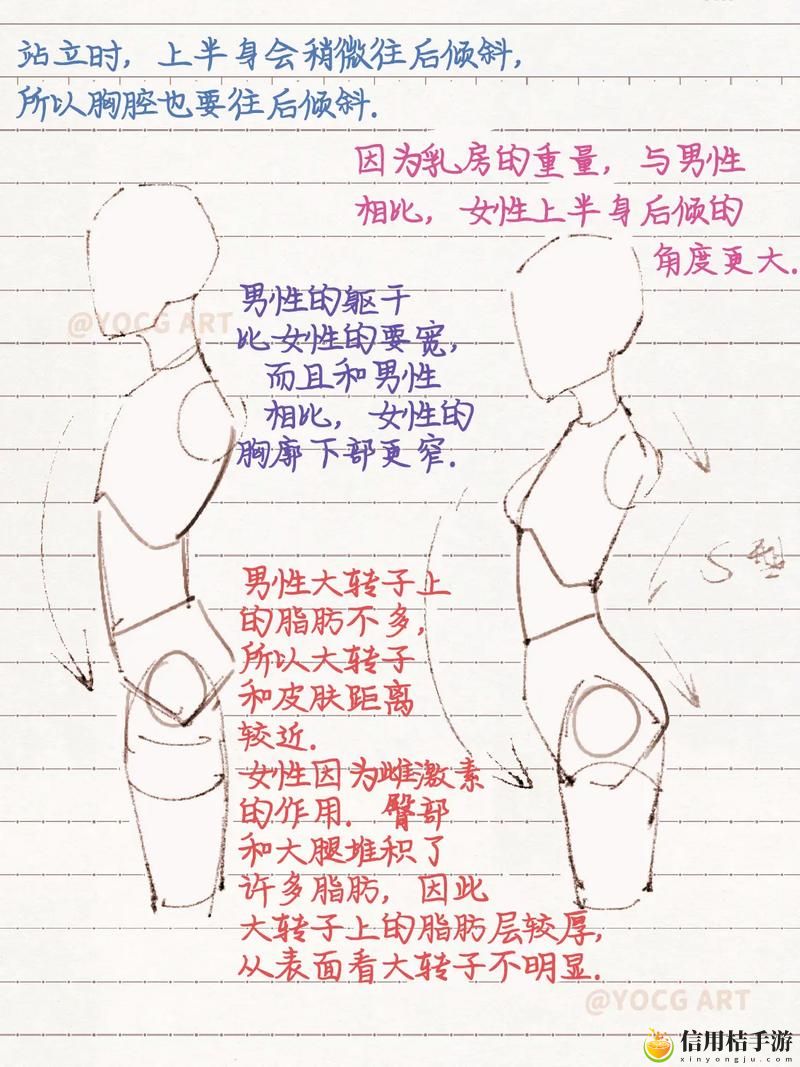 站立时，上半身会稍微往后倾斜，
所以胸腔也要往后倾斜.
因为乳房的重量，与男性
相比，女性上半身后倾的
角度更大.
@YOCG ART
男性的躯干
比女性的要宽，
而且和男性
相比，女性的
胸廓下部更窄.
S型
男性大转子上
的脂肪不多，
所以大转子
和皮肤距离
较近.
女性因为雌激素
的作用.臀部
和大腿堆积了
许多脂肪，因此
大转子上的脂肪层较厚，
从表面看大转子不明显.
@YOCG ART
信用桔手游
xinyongju.com